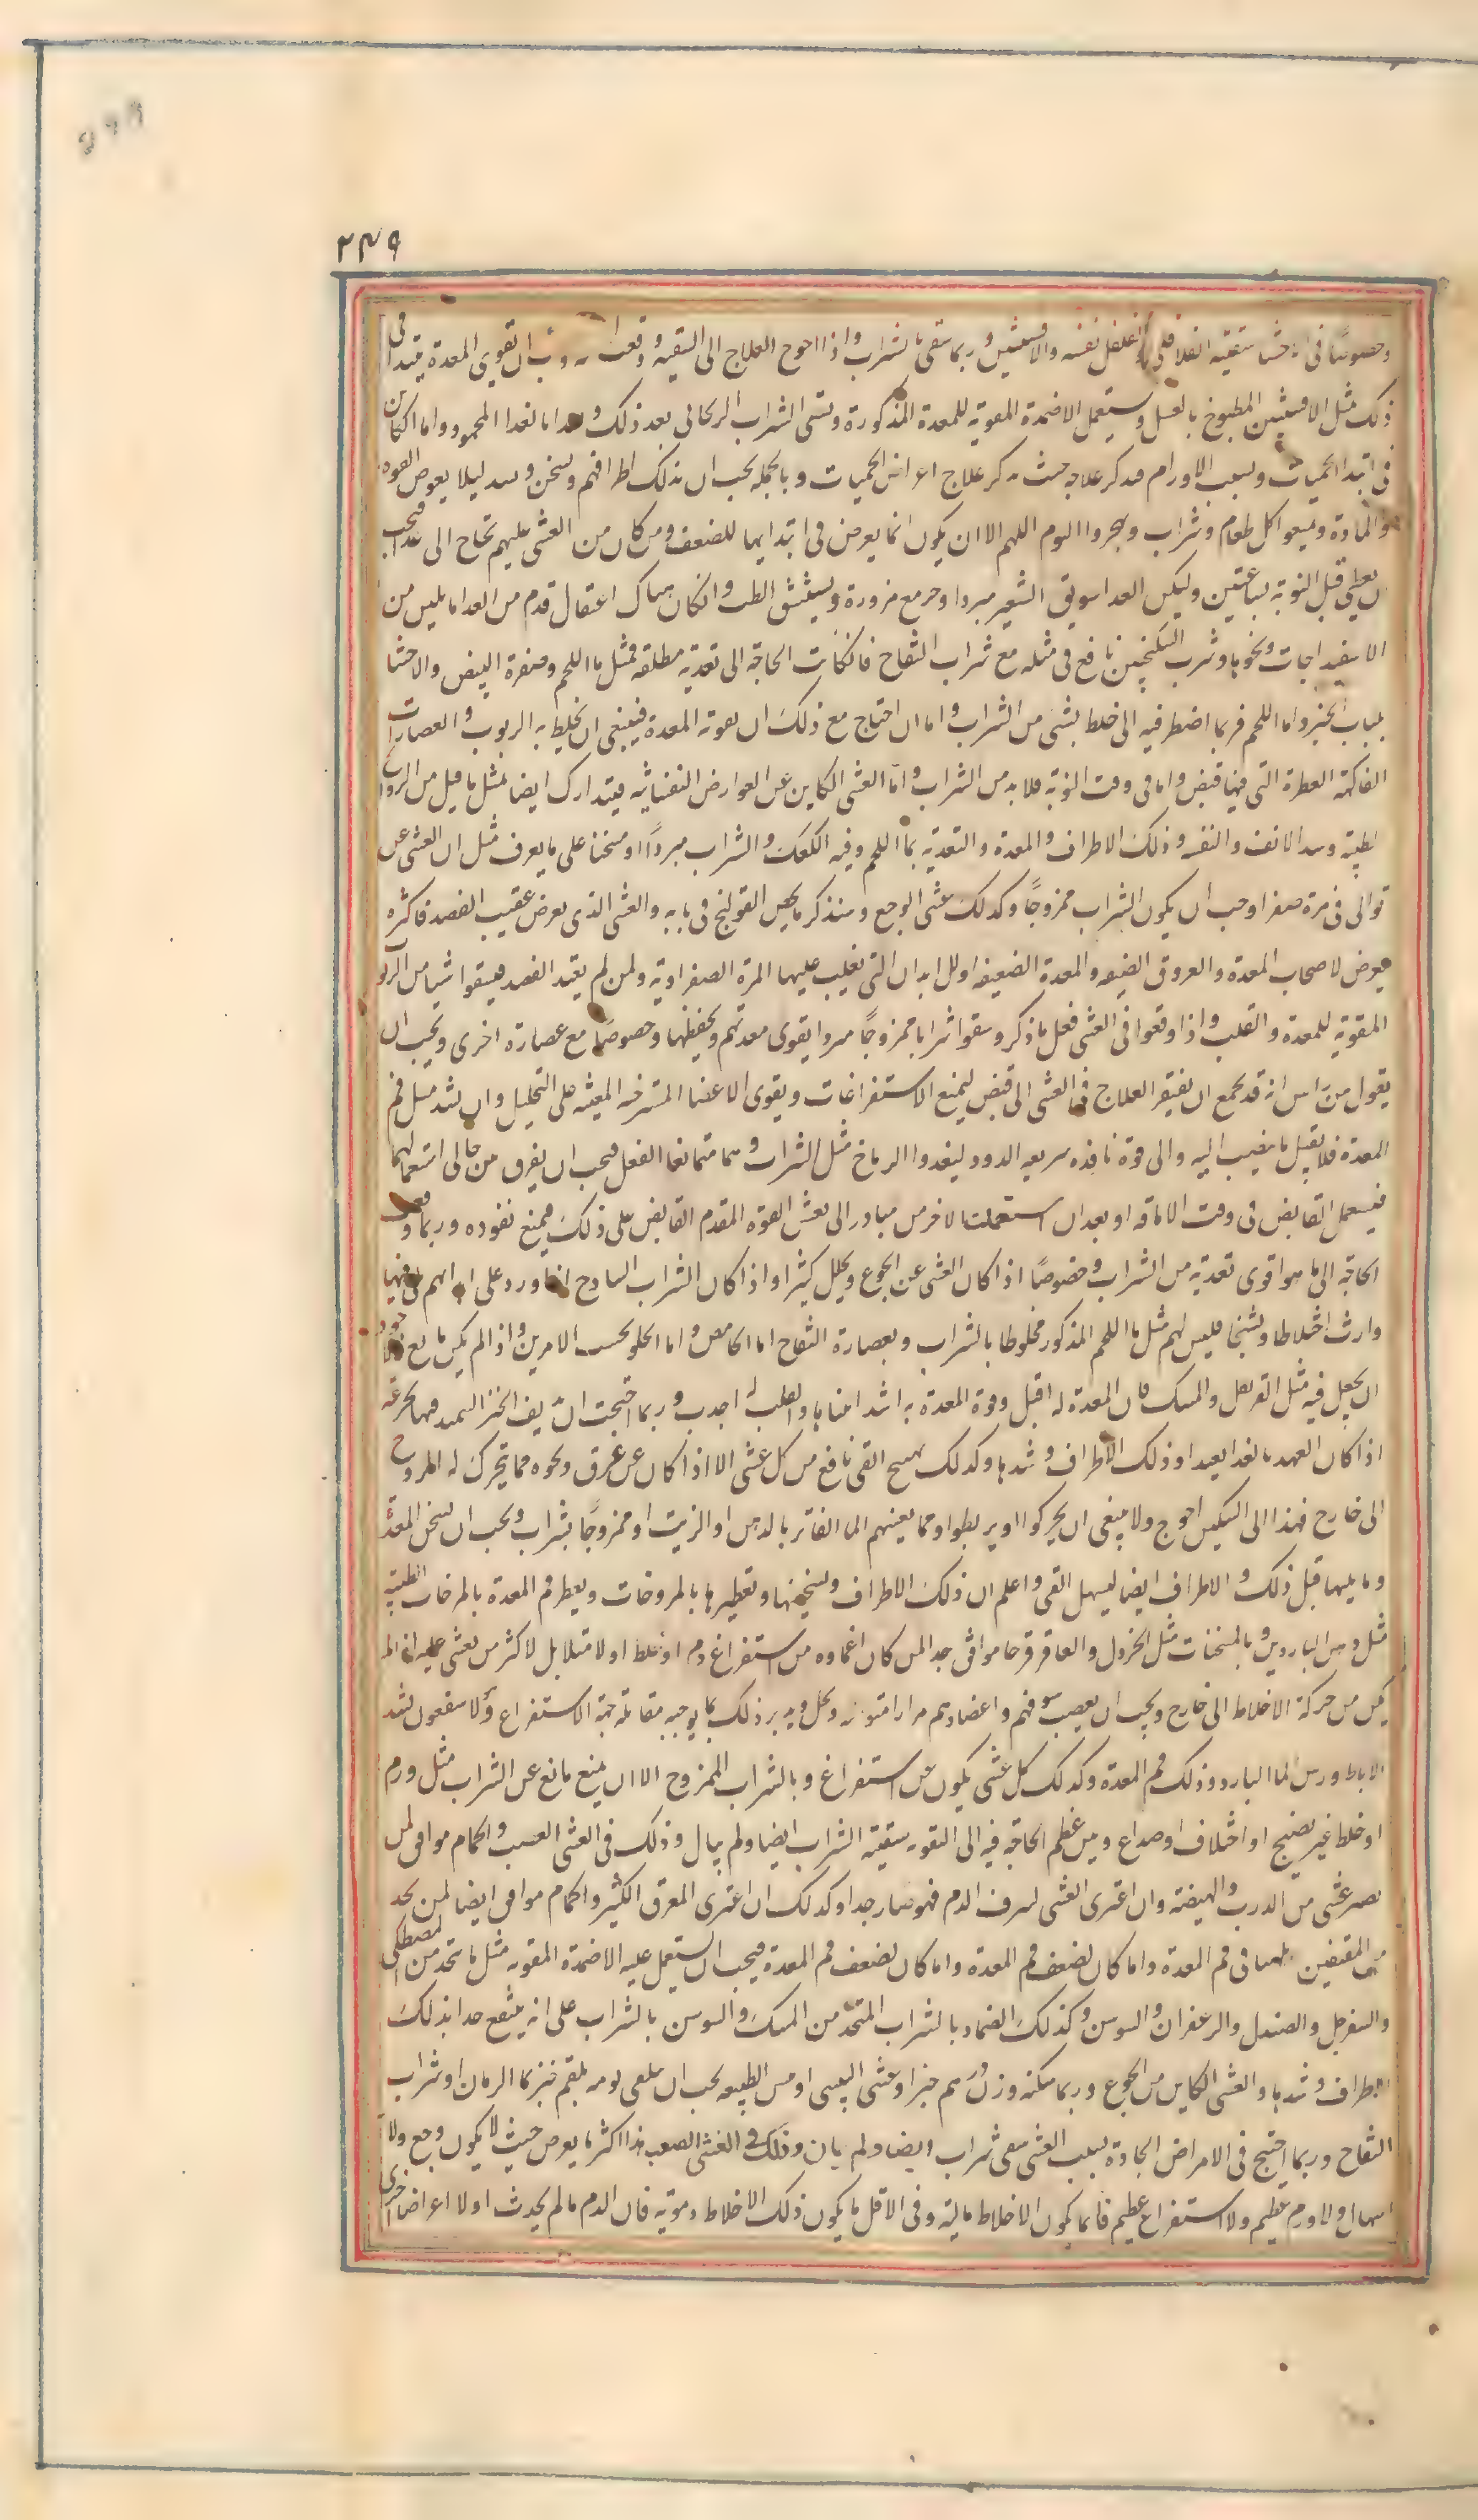 ٣٤٩
وخصوصًا في اخشا سقيه الفلافلي او الفلفل نفسه والافسنتين وربما سقي بالشراب واذا احوج العلاج الى التنقيه ووقعت ان تقوي المعدة فيبتدا في
ذلك مثل الافسنتين المطبوخ بالعسل ويستعمل الاضمدة المقوية للمعدة المذكورة وتسقى الشراب الريحاني بعد ذلك ويغدا بالغدا المحمود واما الكاين
في ابتدا الحميات وبسبب الاورام فنذكر علاجه حيث نذكر علاج اعراض الحميات وبالجملة يجب ان تدلك اطرافهم وتسخن وتشد ليلا يغوص القوه
والمادة وتمنعوا كل طعام وشراب ويهجروا النوم اللهم الا ان يكون انما يعرض في ابتدايها للضعف ومن كان من الغشى عليهم تحتاج الى غدا فيجب
ان يعطى قبل النوبة بساعتين وليكن الغدا سويق الشعير مبردا وخبز مع مزورة ويستنشق الطيب وان كان هناك اعتقال قدم من الغدا ما يلين من
الاسفيداجات ونحوها وشرب السكنجبين نافع في مثله مع شراب التفاح فان كانت الحاجة الى تغدية مطلقه فمثل ماء اللحم وصفرة البيض والاحشا
بلباب الخبز واما اللحم فربما اضطر فيه الى خلط بشى من الشراب واما ان احتاج مع ذلك ان بقوته المعدة فينبغي ان يخلط به الربوب والعصارات
الفاكهة العطرة التي فيها قبض واما في وقت النوبة فلا بد من الشراب وامّا الغشى الكاين عن العوارض النفسانيه فيتدارك ايضا بمثل ما قيل من الروايح
الطيبة وسد الانف والنفه وذلك الاطراف والمعدة والتغدية بماء اللحم وفيه الكعك والشراب مبردًا او مسخنا على ما يعرف مثل ان الغشى عن
توالى في مرة صفرا وجب ان يكون الشراب ممزوجًا وكذلك غشى الوجع وسنذكر ما يخص القولنج في بابه والغشى الذي يعرض عقيب الفصد فاكثره
يعرض لاصحاب المعدة والعروق الضيقه والمعدة الضعيفه او للابدان التي يغلب عليها المرة الصفراوية ولمن لم يعتد الفصد فيسقوا شيا من الربوب
المقوية للمعدة والقلب واذا وقعوا في الغشى فعل ما ذكر وسقوا شرابا ممزوجًا مبردا يقوى معدتهم ويحفظها وخصوصًا مع عصارة اخرى ويجب ان
يقول من راس انه قد يجمع ان يفتقر العلاج في الغشى الى قبض ليمنع الاستفراغات ويقوى الاعضا المسترخيه المعينه على التحليل وان يشد مثل فم
المعدة فلا يقبل ما ينصب اليه والى قوة نافذه سريعه الورود ليغدوا الرماخ مثل الشراب وهما متمانعا الفعل فيجب ان يفرق من حالى استعمالهما
فيستعمل القابض في وقت الافاقه او بعد ان استعملت الاخرس مبادر الى نعش القوه المقدم القابض على ذلك فيمنع نفوذه وربما وقعت
الحاجة الى ما هو اقوى تغدية من الشراب وخصوصًا اذا كان الغشى عن الجوع وتحلل كثير او اذا كان الشراب الساذج اذا ورد على ابدانهم
وارث اختلاطا وتشنجا فليس لهم مثل ماء اللحم المذكور مخلوطا بالشراب وبعصارة التفاح اما الحامض واما الحلو بحسب الامرين واذا لم يكن مانع فيجود
ان يجعل فيه مثل القرنفل والمسك فان المعدة له اقبل وقوة المعدة به اشد انتباها والقلب له اجدب وربما احتجت ان يضيف الخبز السميد فيها مجرعة
اذا كان العهد بالغدا بعيدا وذلك الاطراف وشدها وكذلك تهييج القي نافع من كل غشى الا اذا كان عن عرق ونحوه مما تحرك له الروح
الى خارج فهذا الى التسكين احوج ولا ينبغي ان يحركوا او يربطوا ومما يعينهم الماء الفاتر بالدهن او الزيت او ممزوجًا بشراب ويجب ان تسخن المعدة
وما يليها قبل ذلك والاطراف ايضا ليسهل القي واعلم ان ذلك الاطراف وتسخينها وتعطيرها بالمروخات وتعطر فم المعدة بالمروخات الطيبة
مثل دهن الناردين وبالمسخنات مثل الخردل والعاقرقرحا موافق جدا لمن كان اغماوه من استفراغ دم او خلط او لامتلا بل لاكثر من يغشى عليه اذا لم
يكن من حركة الاخلاط الى خارج ويجب ان يعصب سوقهم واعضادهم مرارا متواليه وتحل ويدبر ذلك بما يوجبه مقابلة جهة الاستفراغ ولا ينفعون بشد
الاباط ورش الماء البارد وذلك فم المعدة وكذلك كل غشى يكون عن استفراغ وبالشراب الممزوج الا ان يمنع مانع عن الشراب مثل ورم
او خلط غير نضيج او اختلاف او صداع ومن عظم الحاجة فيه الى التقويه سقيته الشراب ايضا ولم يبال وذلك في الغشى الصعب والحمام موافق لمن
يصير غشى من الدرب والهيضة وان اعترى الغشى لنزف الدم فهو ضار جدا وكذلك ان اعترى العرق الكثير والحمام موافق ايضا لمن يجد
من المفيقين لهيبا في فم المعدة واما كان لضعف فم المعدة واما كان لضعف فم المعدة فيجب ان تستعمل عليه الاضمدة المقويه مثل ما تتخد من المصطكى
والسفرجل والصندل والزعفران والسوسن وكذلك الضماد بالشراب المتخذ من المسك والسوسن بالشراب على انه ينتفع جدا بذلك
الاطراف وشدها والغشى الكاين من الجوع وربما سكنه وزن درهم خبز او غشى اليبس او مس الطبيعه يجب ان تلقى يومه بلقم خبز بماء الرمان او شراب
التفاح وربما احتيج في الامراض الحادة لسبب الغشى سقى شراب ايضا ولم يبال وذلك في الغشى الصعب هذا اكثر ما يعرض حيث لا يكون وجع ولا
اسهال ولا ورم عظيم ولا استفراغ عظيم فانما يكون الاخلاط مالية وفي الاقل ما يكون ذلك الاخلاط دموية فان الدم ما لم يحدث اولا اعراضا اخرى